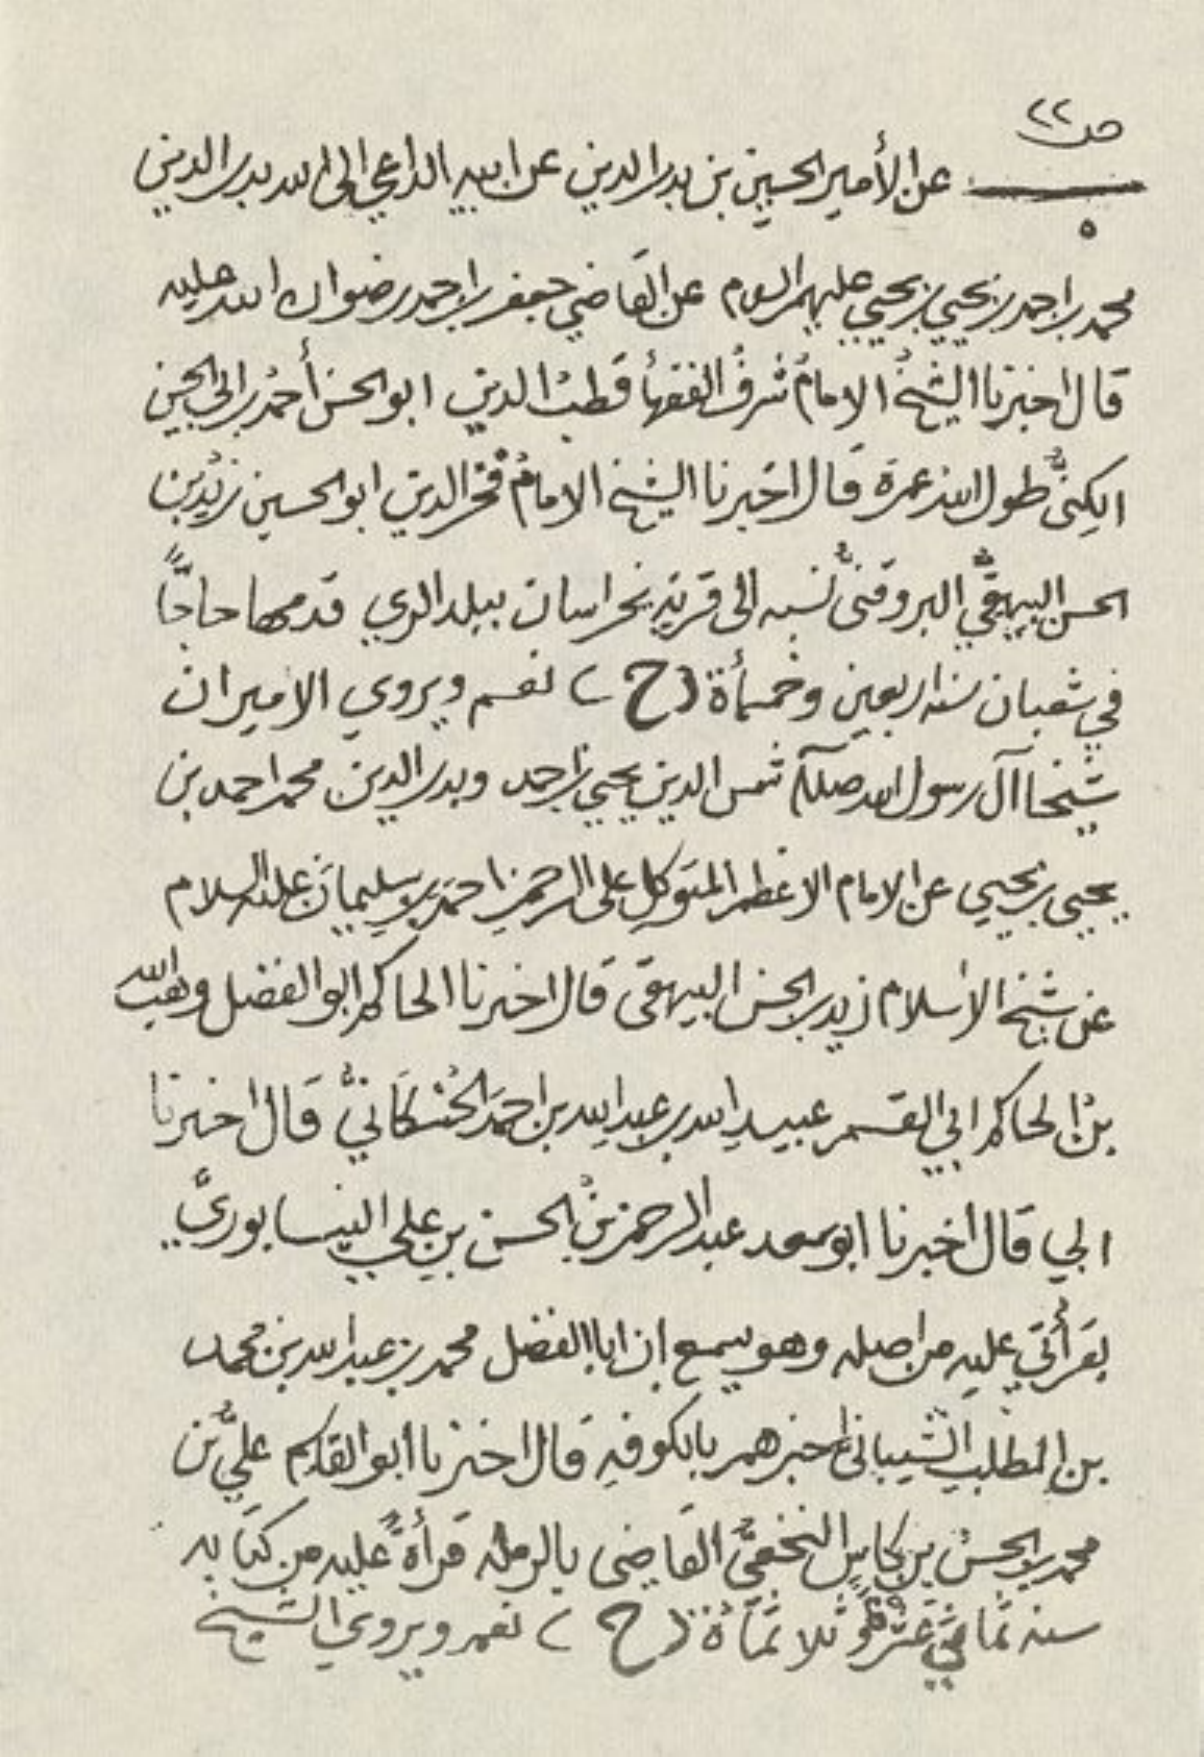 ص ٢٢
٥
عن الأمير الحسين بن بدر الدين عن ابيه الداعي الى الله بدر الدين
محمد بن احمد بن يحيى بن يحيى عليهم السلام عن القاضي جعفر بن احمد رضوان الله عليه
قال اخبرنا الشيخُ الامامُ شرفُ الفقهأ قطبُ الدين ابو الحسن أحمدُ بن ابي الحسن
الكنيُّ طول الله عمره قال اخبرنا الشيخ الامامُ فخر الدين ابو الحسين زيدُ بن
الحسن البيهقيُّ البروقنيُّ نسبه الى قرية بخراسان ببلد الري قدمها حاجًّا
في شعبان سنة اربعين وخمسمأة (ح) نعم ويروي الاميران
شيخا آل رسول الله صللم شمس الدين يحيى بن احمد وبدر الدين محمد احمد بن
يحيى بن يحيى عن الامام الاعظم المتوكل على الرحمن احمد بن سليمان عليه السلام
عن شيخ الاسلام زيد بن الحسن البيهقي قال اخبرنا الحاكم ابو الفضل وهب الله
بن الحاكم ابي القسم عبيد الله بن عبد الله بن احمد الحسكانيُّ قال اخبرنا
ابي قال اخبرنا ابو سعد عبد الرحمن بنُ الحسن بن علي النيسابوريُّ
بقرأتي عليه من اصله وهو يسمع ان ابا الفضل محمد بن عبد الله بن محمد
بن المطلب الشيباني اخبرهم بالكوفه قال اخبرنا ابو القاسم عليُّ بن
محمد بن الحسن بن كاس النخعيُّ القاضي بالرمله قرأةً عليه من كتابه
سنه ثماني عشرة وثلاثمأة (ح) نعم ويروي الشيخ